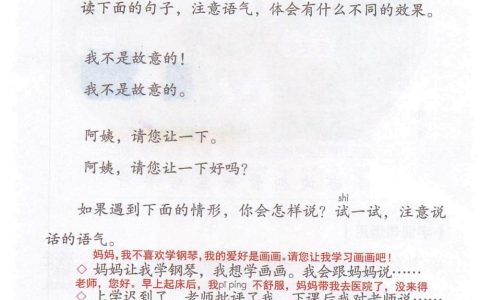 读下面的句子，注意语气，体会有什么不同的效果。
我不是故意的！
我不是故意的。
阿姨，请您让一下。
阿姨，请您让一下好吗？
shì
如果遇到下面的情形，你会怎样说？试一试，注意说
话的语气。
妈妈，我不喜欢学钢琴，我的爱好是画画。请您让我学习画画吧！
◇ 妈妈让我学钢琴，我想学画画。我会跟妈妈说……
pī píng
老师，您好。早上起床后，我不舒服，妈妈带我去医院了，没来得
◇ 上学迟到了，老师批评了我，下课后我对老师说……